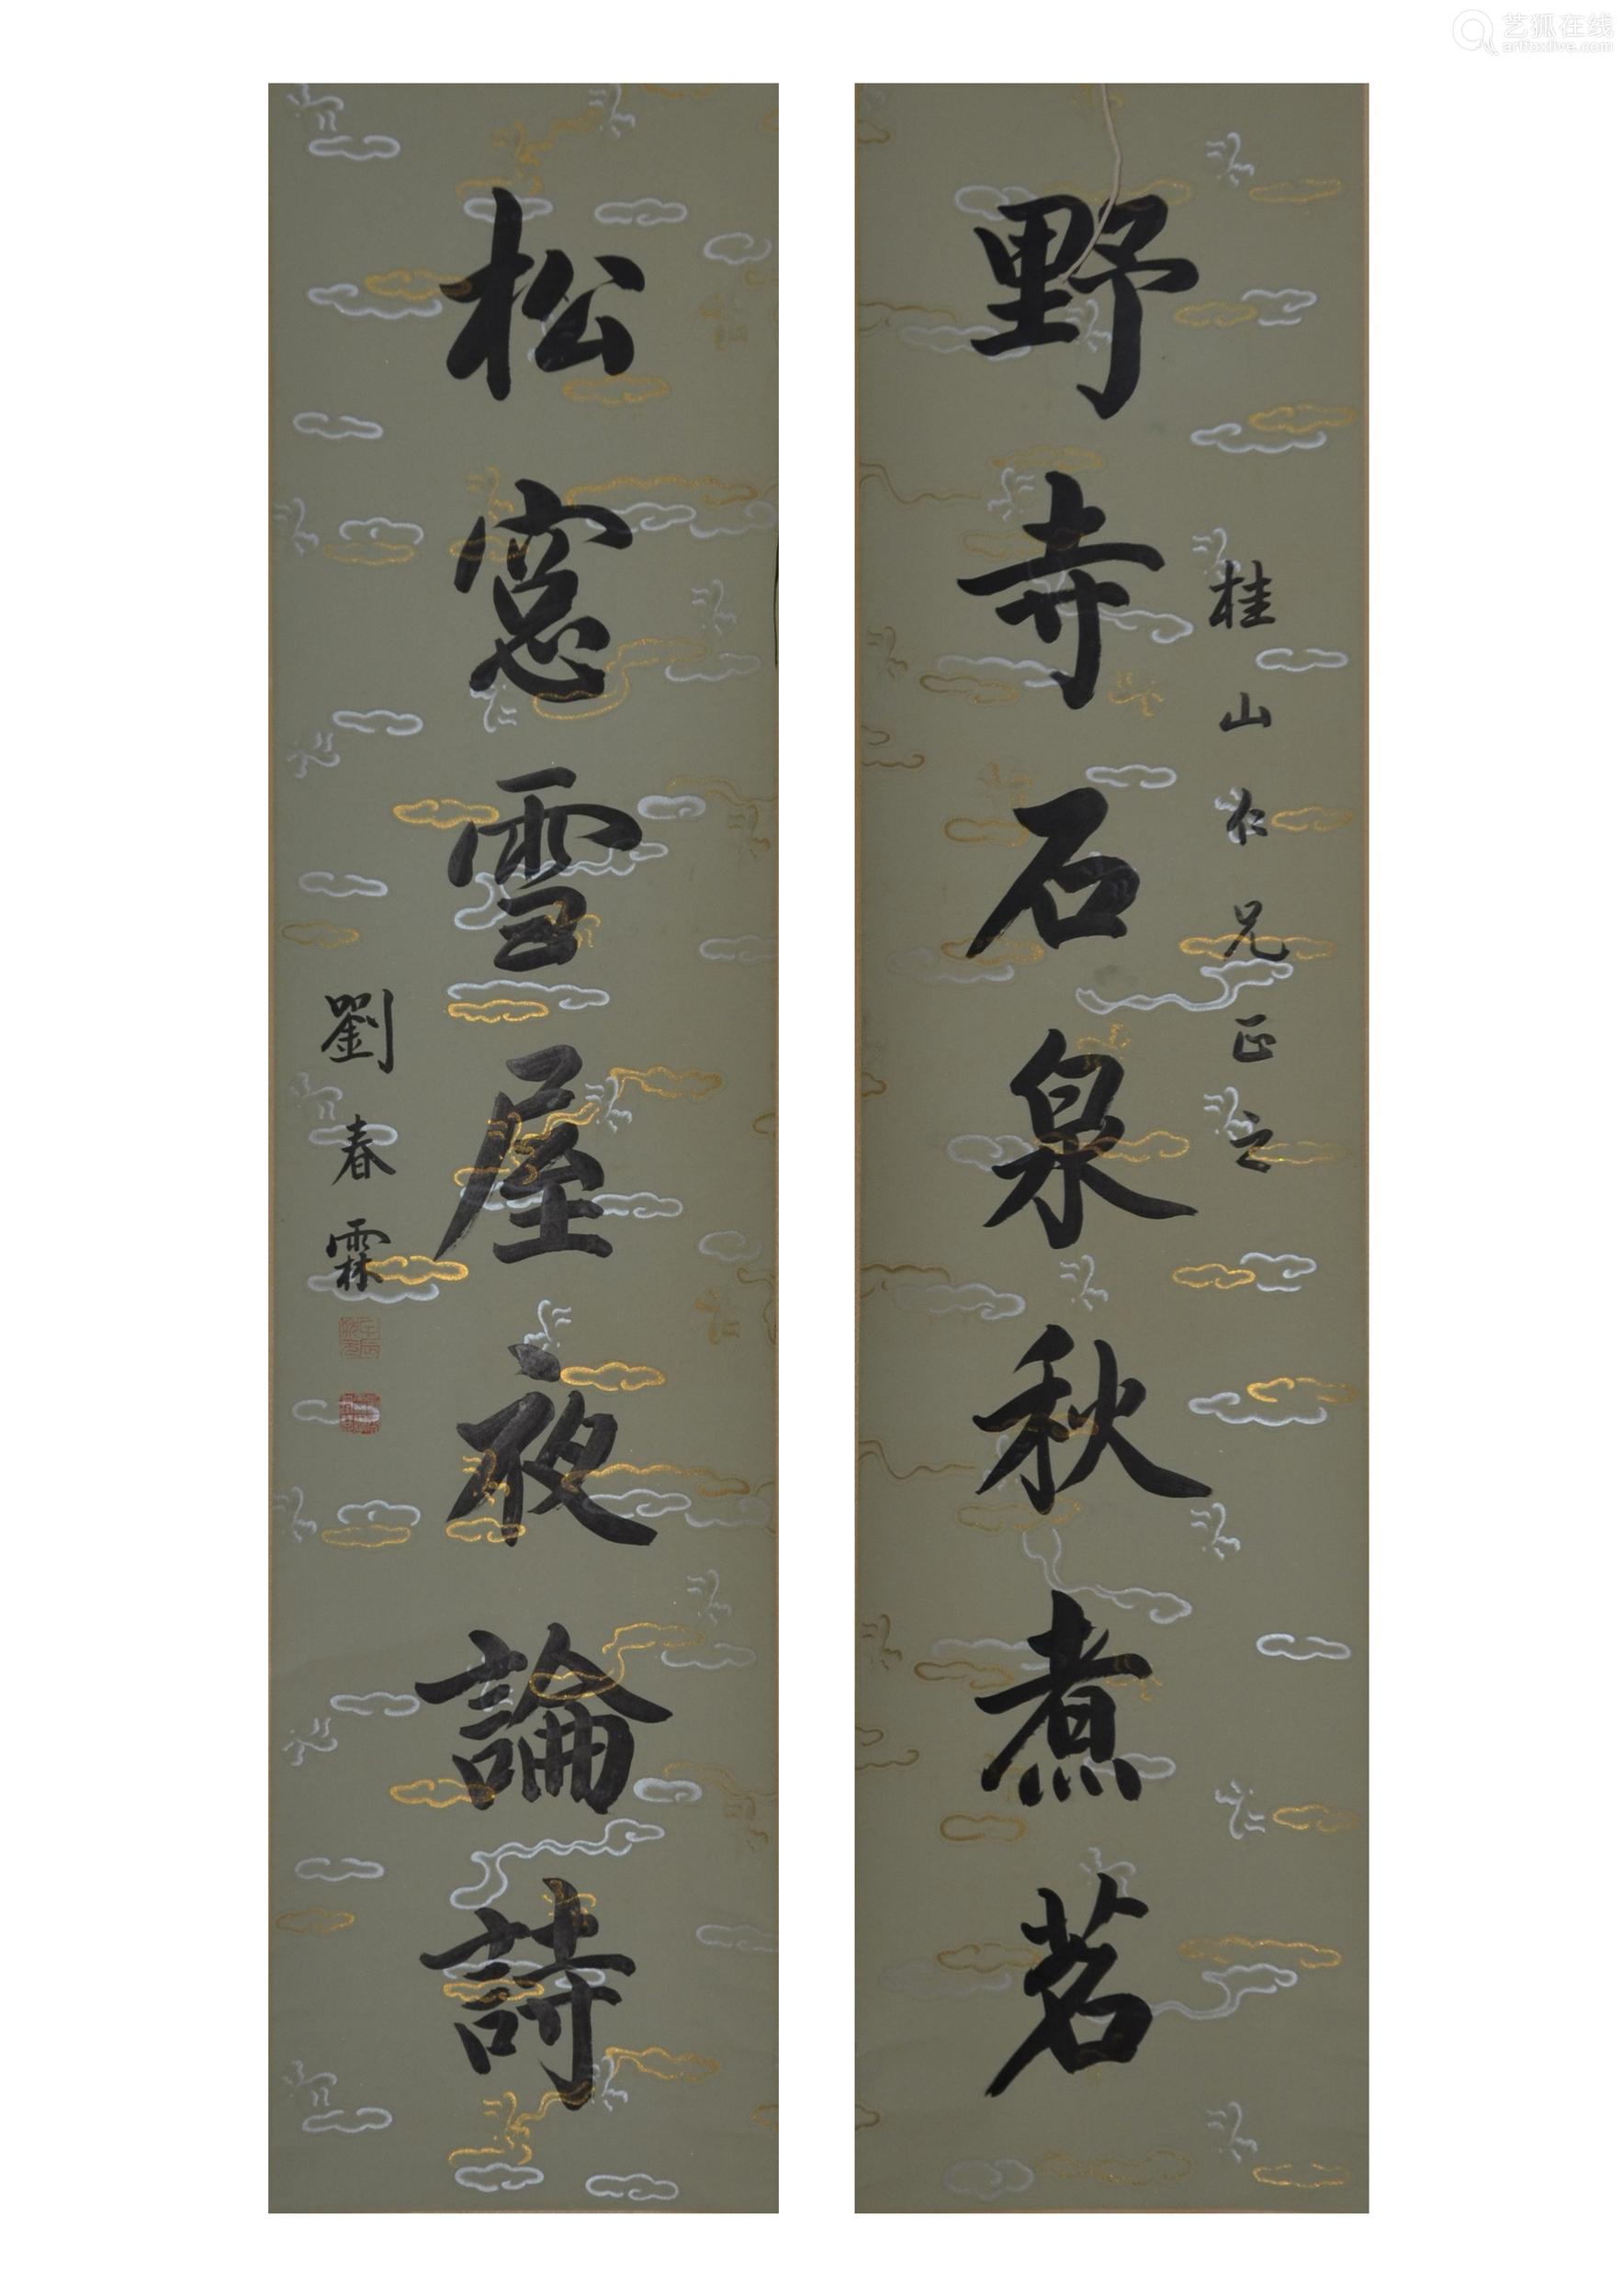 艺狐在线
artfoxlive.com
桂山仁兄正之
野寺石泉秋煮茗
松窓雪屋夜論詩
劉春霖